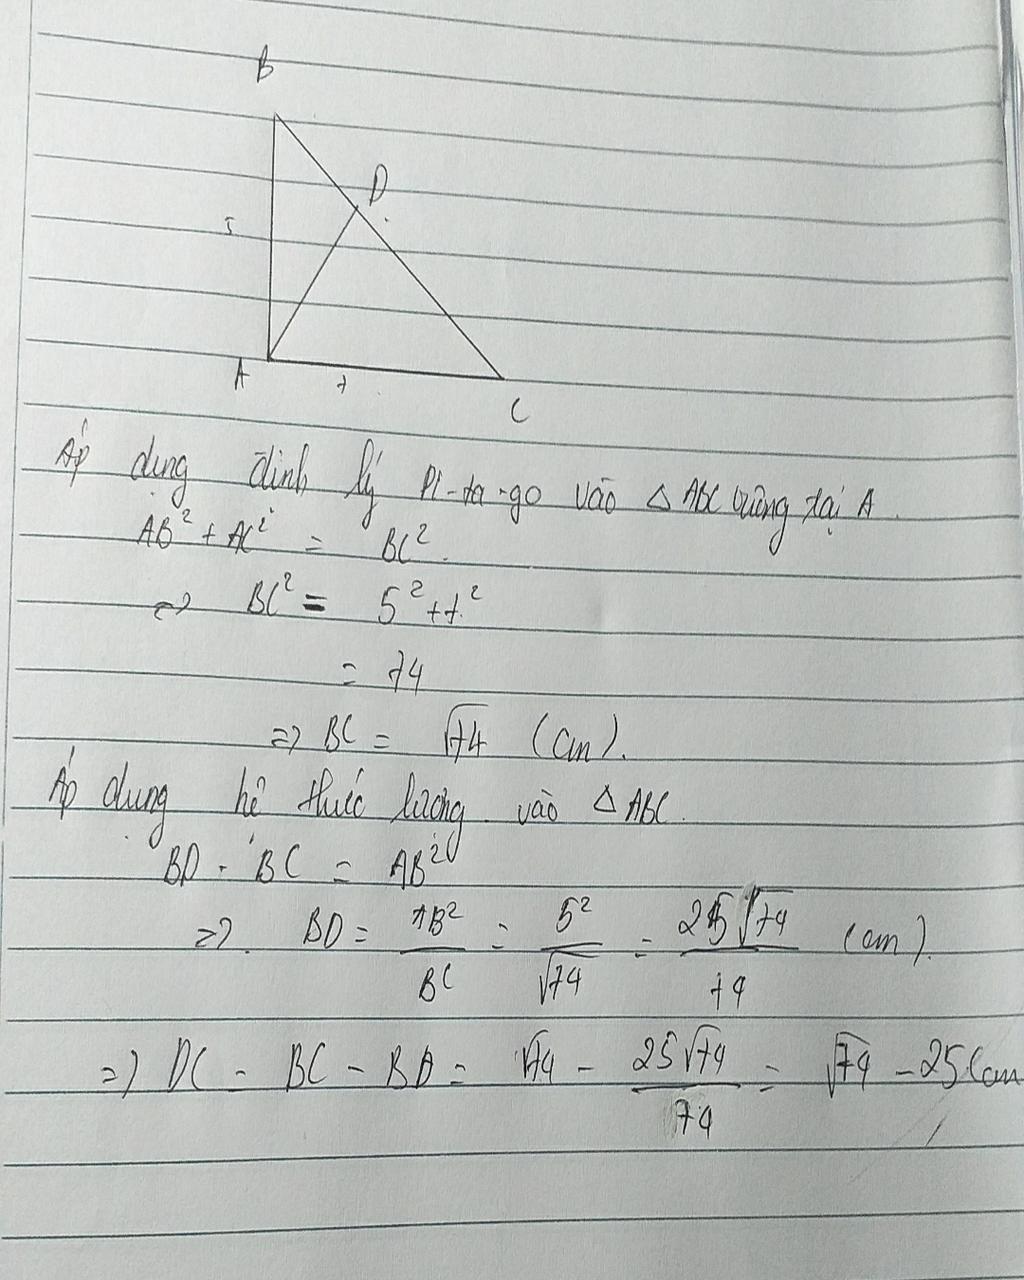 B
D
5
A
7
C
Áp dụng định lý Pi-ta-go vào △ ABC vuông tại A.
AB² + AC² = BC².
=> BC² = 5² + 7²
= 74
=> BC = √74 (cm).
Áp dụng hệ thức lượng vào △ ABC.
BD . BC = AB²
=> BD = AB²/BC = 5²/√74 = 25√74/74 (cm).
=> DC = BC - BD = √74 - 25√74/74 = √74 - 25 (cm